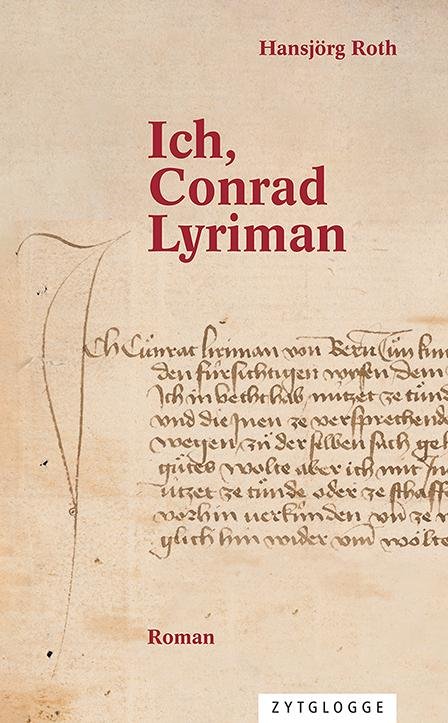 Hansjörg Roth
Ich,
Conrad
Lyriman
Ich Cůnrat lyriman von Bern Tůn kun
den fürsichtigen wysen dem
Ich in vechthab ützet ze tünd
und die Inen ze versprechende
wegen, zů der selben sach geh
gůtes wolte aber ich mit In
ützet ze tůnde oder ze schaff
vorhin verkünden und ze
glich hin wider und wölte
Roman
ZYTGLOGGE